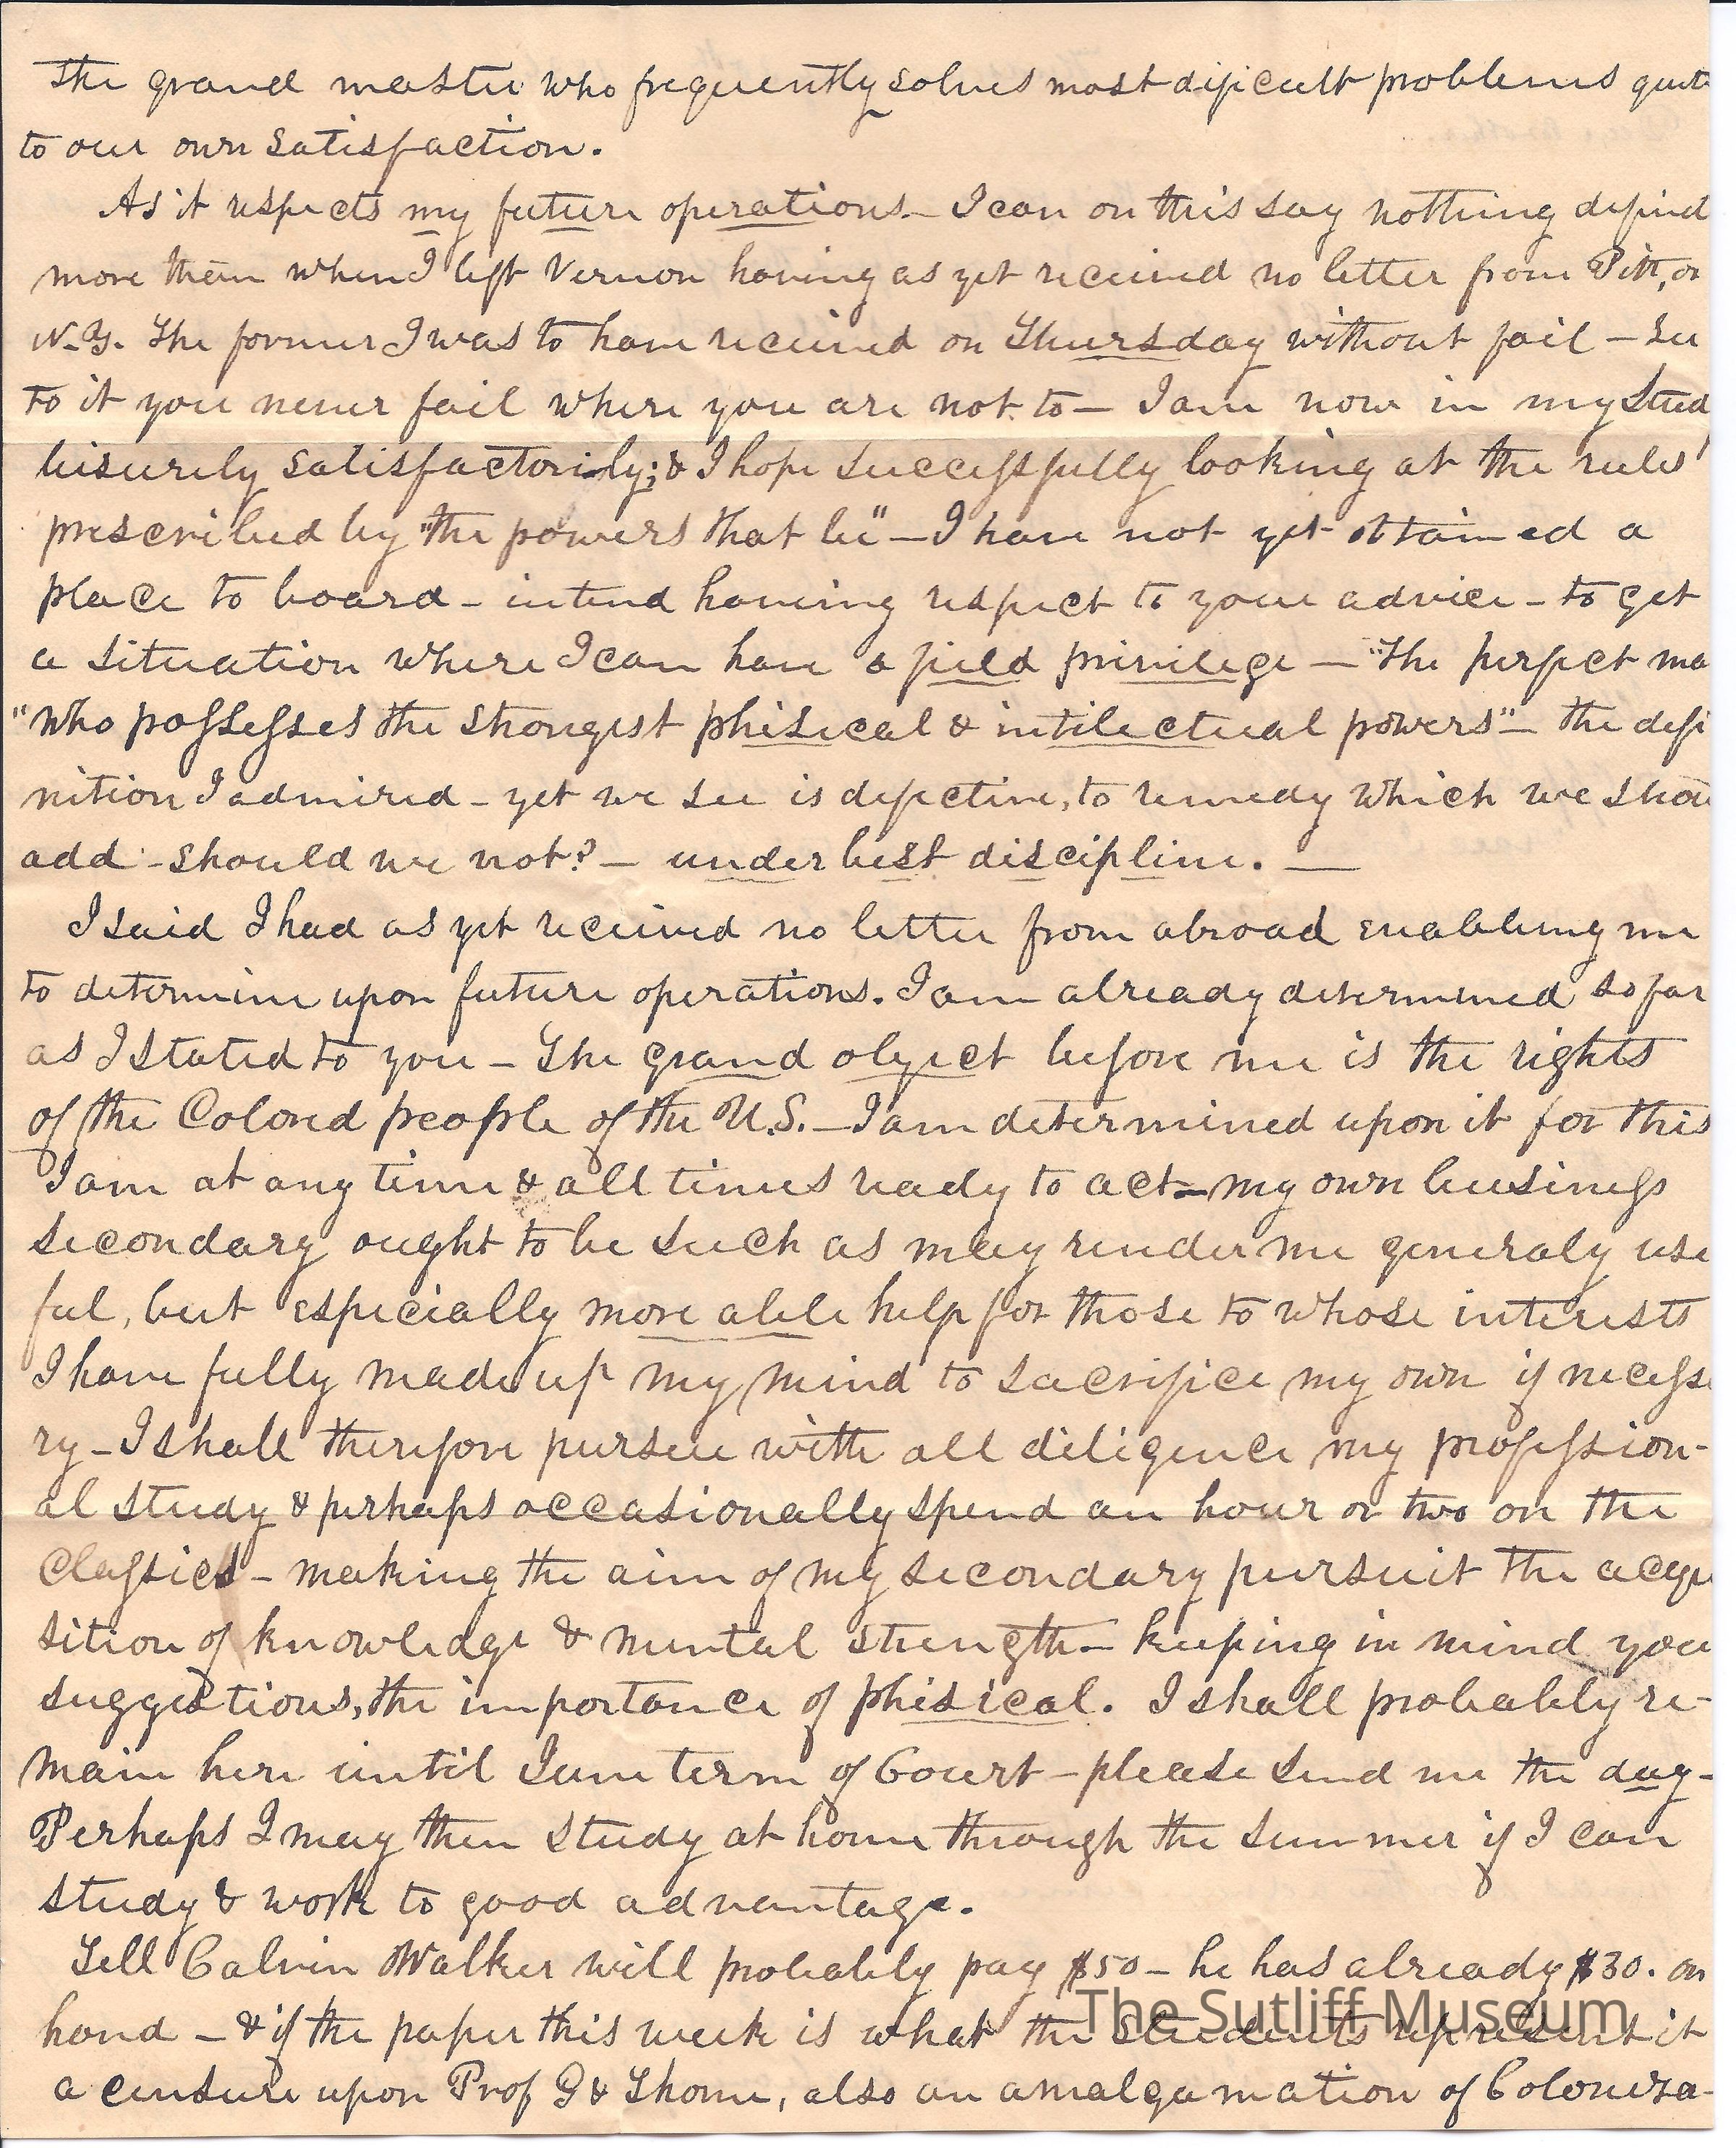 The grand master who frequently solves most dificult problems quite
to our own satisfaction.
As it respects my future operations – I can on this say nothing definit
more then when I left Vernon having as yet received no letter from Pitt, or
N.Y. The former I was to have received on Thursday without fail – See
to it you never fail where you are not to – I am now in my Stud
leisurely satisfactorily; & I hope successfully looking at the rules
prescribed by "the powers that be" – I have not yet obtained a
place to board – intend having respect to your advice – to get
a situation where I can have a field privilege – "The perfect ma
"who possesses the strongest phisical & intilectual powers" – the defi
nition I admired – yet we see is defective, to remedy which we shou
add – should we not? – under best discipline. —
I said I had as yet received no letter from abroad enableing me
to determine upon future operations. I am already determined so far
as I stated to you – The grand object before me is the rights
of the Colored people of the U.S. – I am determined upon it for this
I am at any time & all times ready to act – my own business
secondary ought to be such as may render me generaly use
ful, but especially more able help for those to whose interests
I have fully made up my mind to sacrifice my own if necessa
ry – I shall therefore pursue with all diligence my profession-
al study & perhaps occasionally spend an hour or two on the
Classics – making the aim of my secondary pursuit the acqui
sition of knowledge & mental strength – keeping in mind your
suggestions, the importance of phisical. I shall probably re-
main here until June term of Court – please send me the day –
Perhaps I may then study at home through the summer if I can
study & work to good advantage.
Tell Calvin Walker will probably pay $50 – he has already $30. on
hand – & if the paper this week is what the students represent it
a censure upon Prof G & Thome, also an amalgamation of Coloniza-
The Sutliff Museum